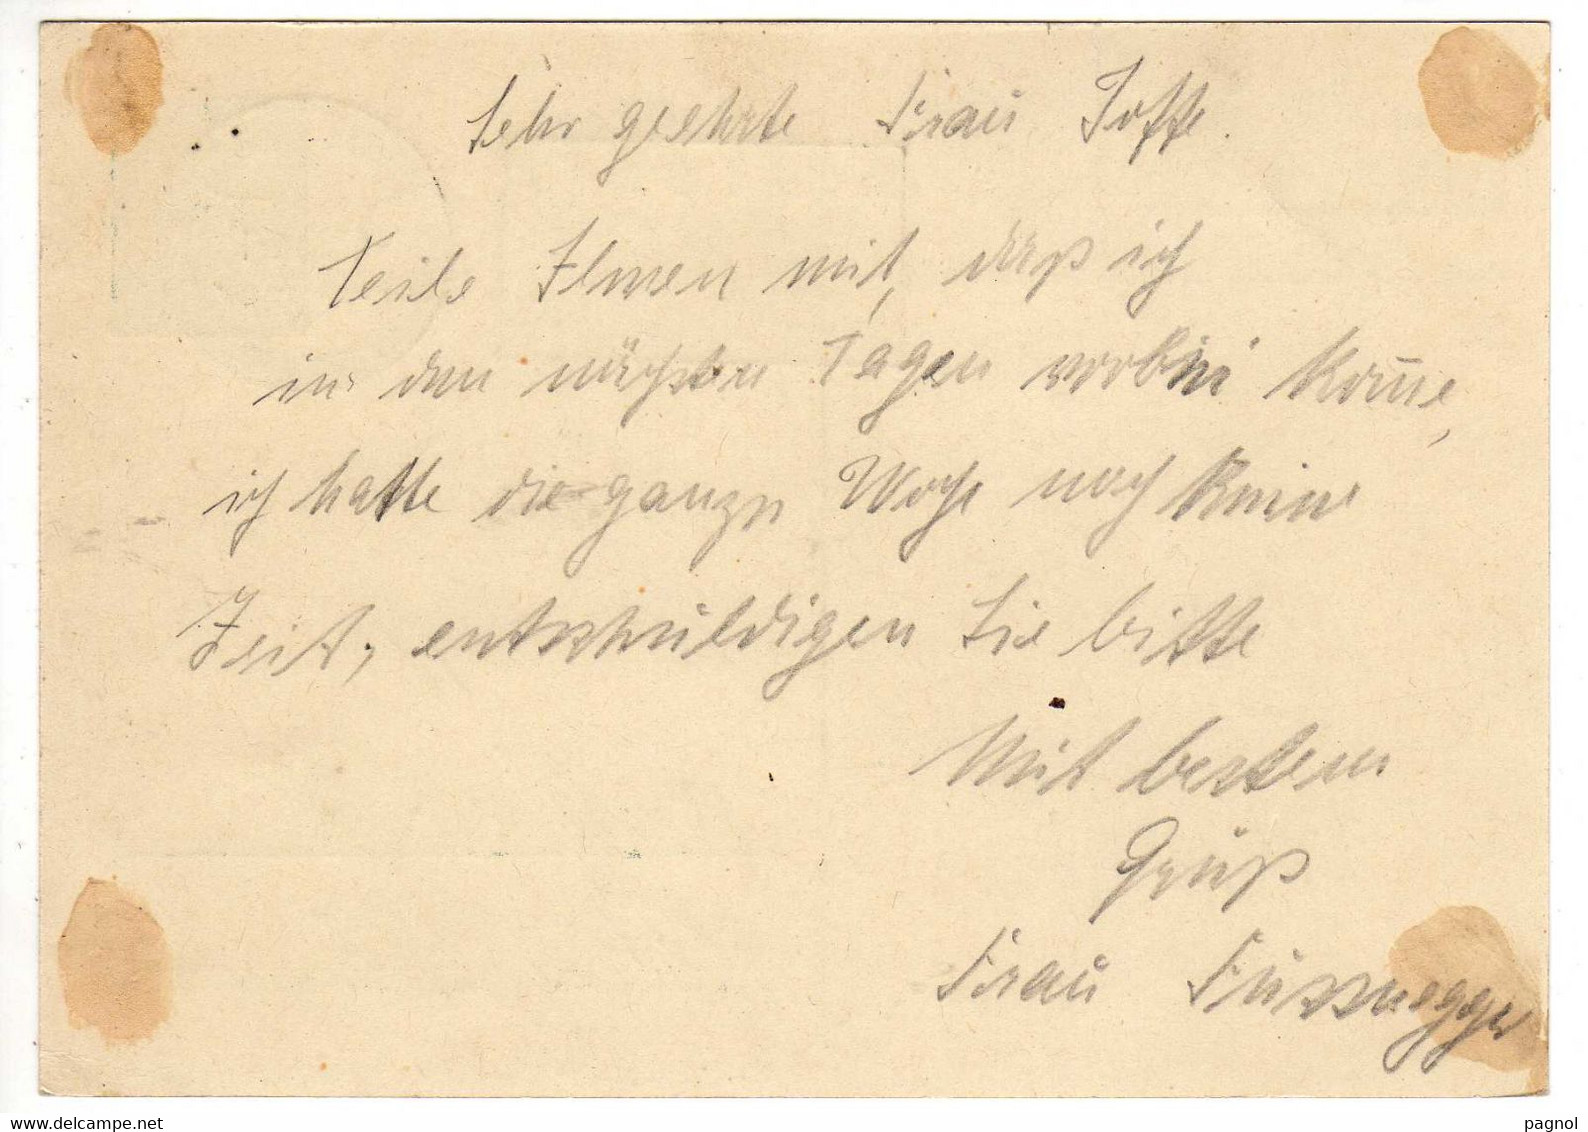 Sehr geehrte Frau Joffe.
Teile Ihnen mit, daß ich
in den nächsten Tagen vorbei kom̄e,
ich hatte die ganze Woche noch keine
Zeit, entschuldigen Sie bitte
Mit bestem
Gruß
Frau Fussnegger
www.delcampe.net
pagnol